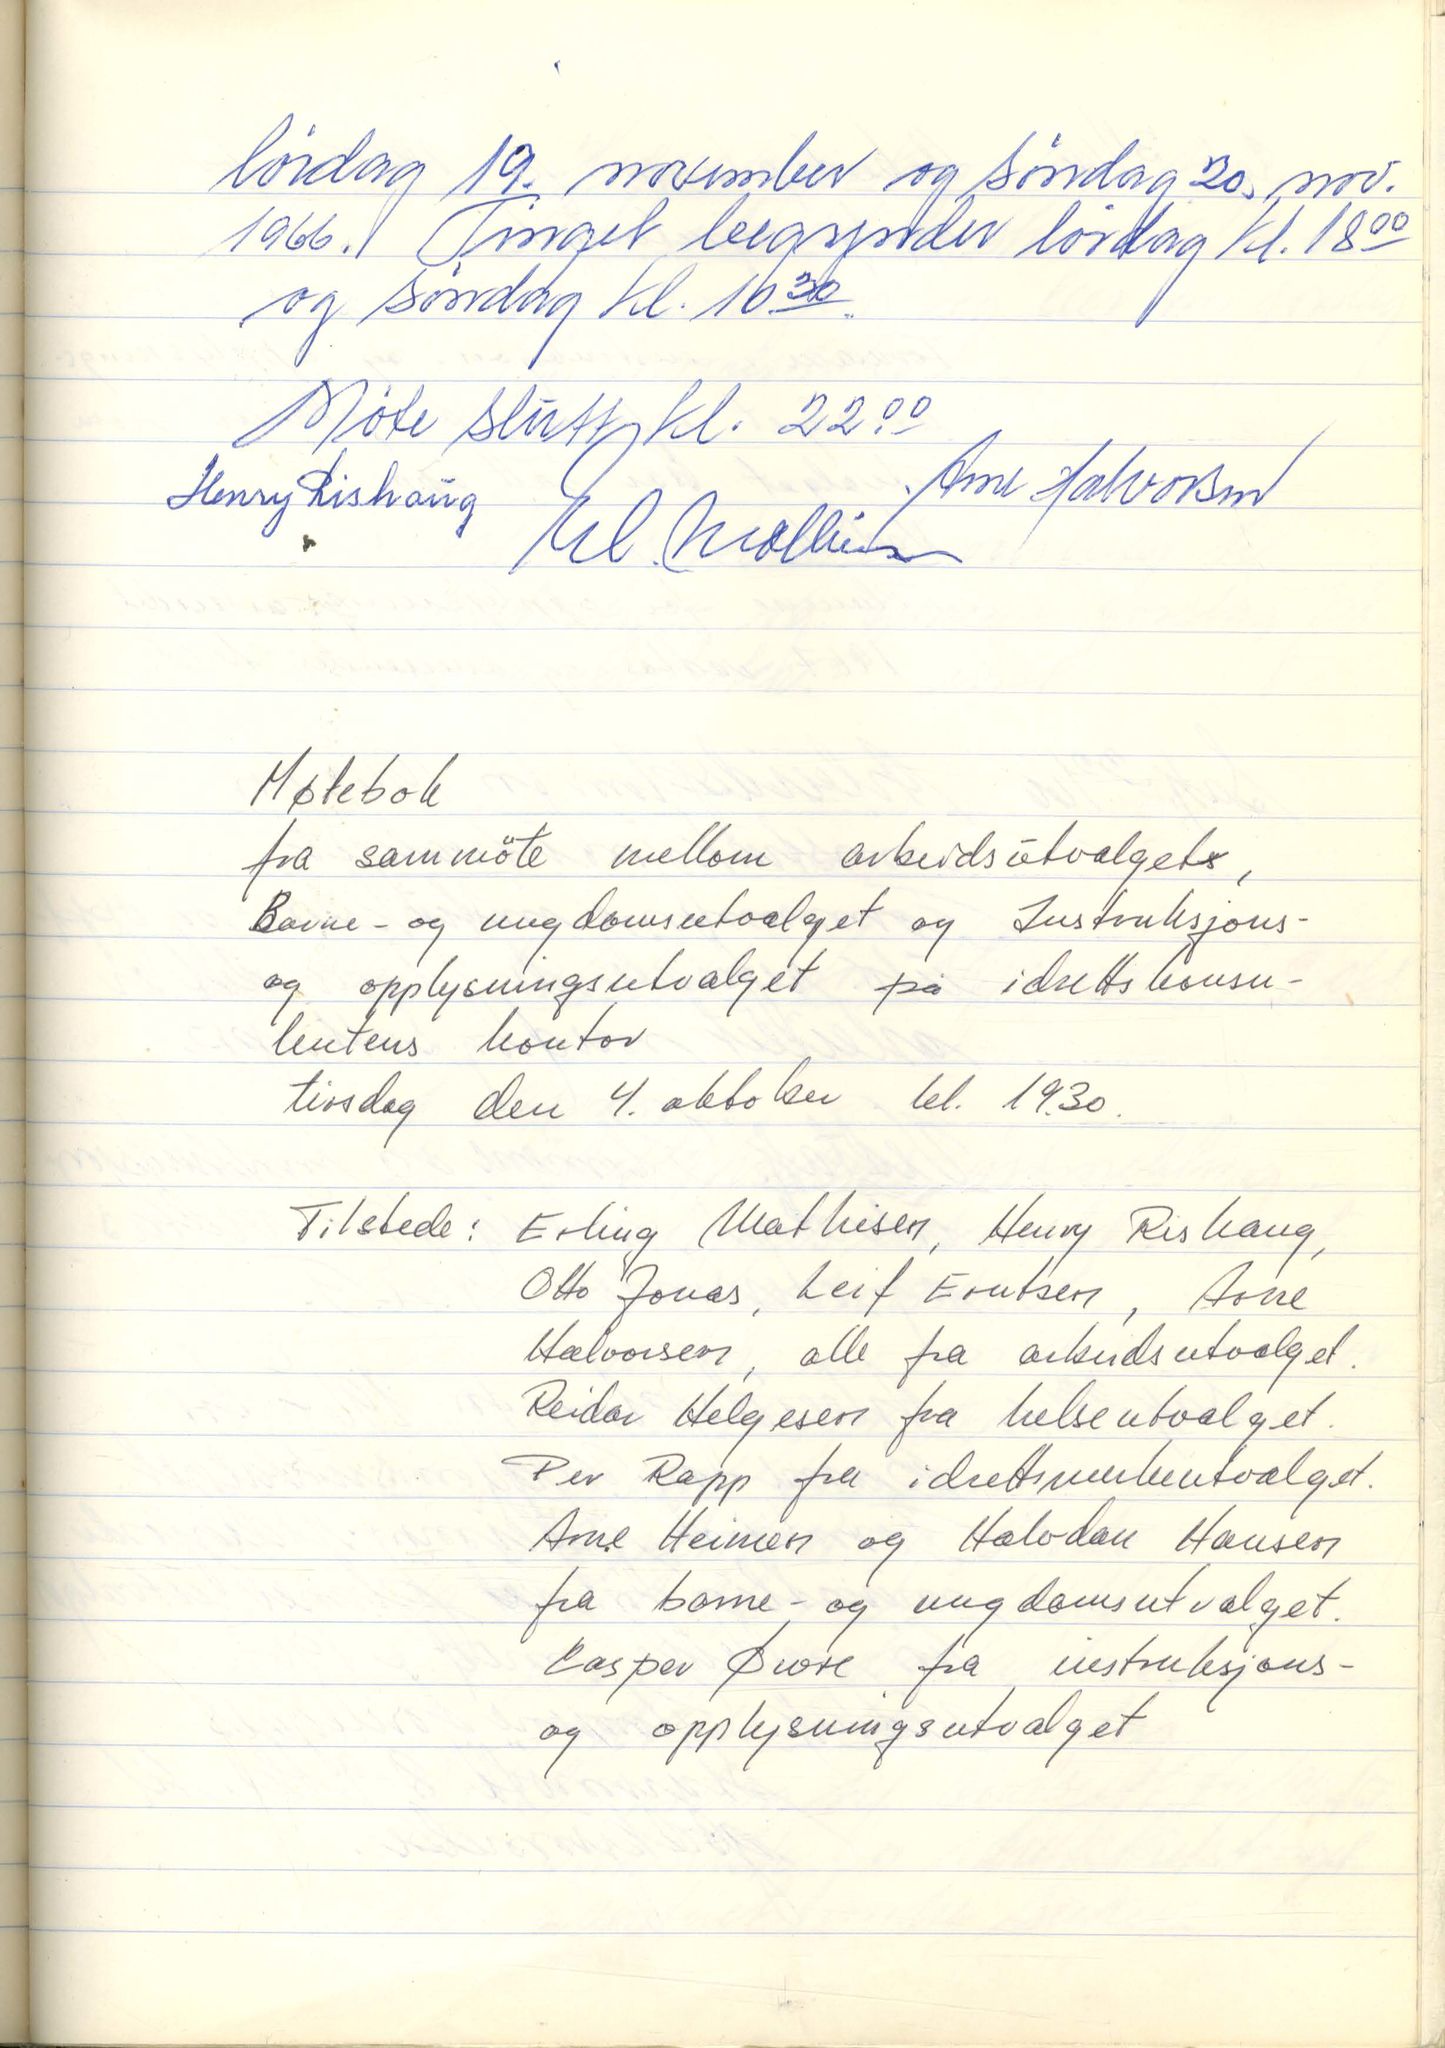 lördag 19. november og söndag 20. nov.
1966. Tinget begynder lördag kl. 18⁰⁰
og söndag kl. 10³⁰.
Möte slutt kl. 22⁰⁰
Henry Rishaug Arne Halvorsen
Møtebok
fra sammöte mellom arbeidsutvalget,
Barne- og ungdomsutvalget og Instruksjons-
og opplysningsutvalget på idrettskonsu-
lentens kontor
tirsdag den 4. oktober kl. 19.30.
Tilstede: Erling Mathisen, Henry Rishaug,
Otto Jonas, Leif Erntsen, Arne
Halvorsen, alle fra arbeidsutvalget.
Reidar Helgesen fra helseutvalget.
Per Rapp fra idrettsmerkeutvalget.
Arne Heimen og Halvdan Hansen
fra barne- og ungdomsutvalget.
Kasper fra instruksjons-
og opplysningsutvalget